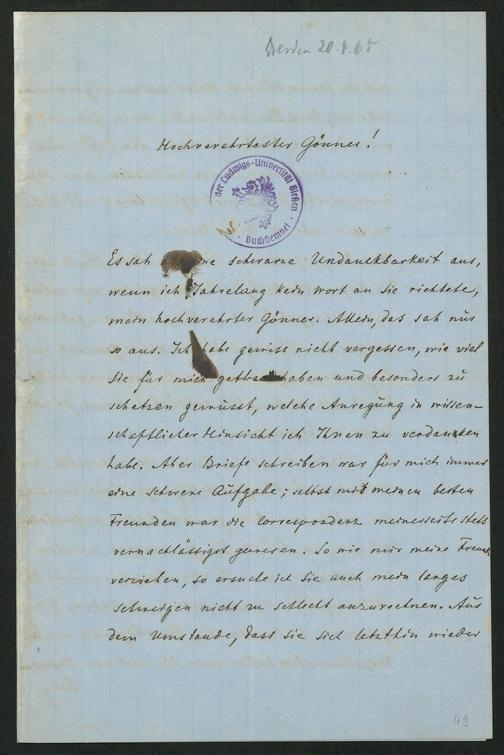 Dresden 20.4.65
Hochverehrtester Gönner!
der Ludwigs-Universität Gießen
Buchstempel
Es sah ne schwarze Undankbarkeit aus,
wenn ich Jahrelang kein wort an Sie richtete,
mein hochverehrter Gönner. Allein, das sah nur
so aus. Ich habe gewiss nicht vergessen, wie viel
Sie für mich gethan haben und besonders zu
schetzen gewusst, welche Anregung in wissen-
schaftlicher Hinsicht ich Ihnen zu verdanken
habe. Aber Briefe schreiben war für mich immer
eine schwere Aufgabe; selbst mit meinen besten
Freunden war die Correspondenz meinerseits stets
vernachlässigt gewesen. So wie mir meine Freun
verziehen, so ersuche ich Sie auch mein langes
Schweigen nicht zu schlecht anzurechnen. Aus
dem Umstande, dass sie sich letzthin wieder
49